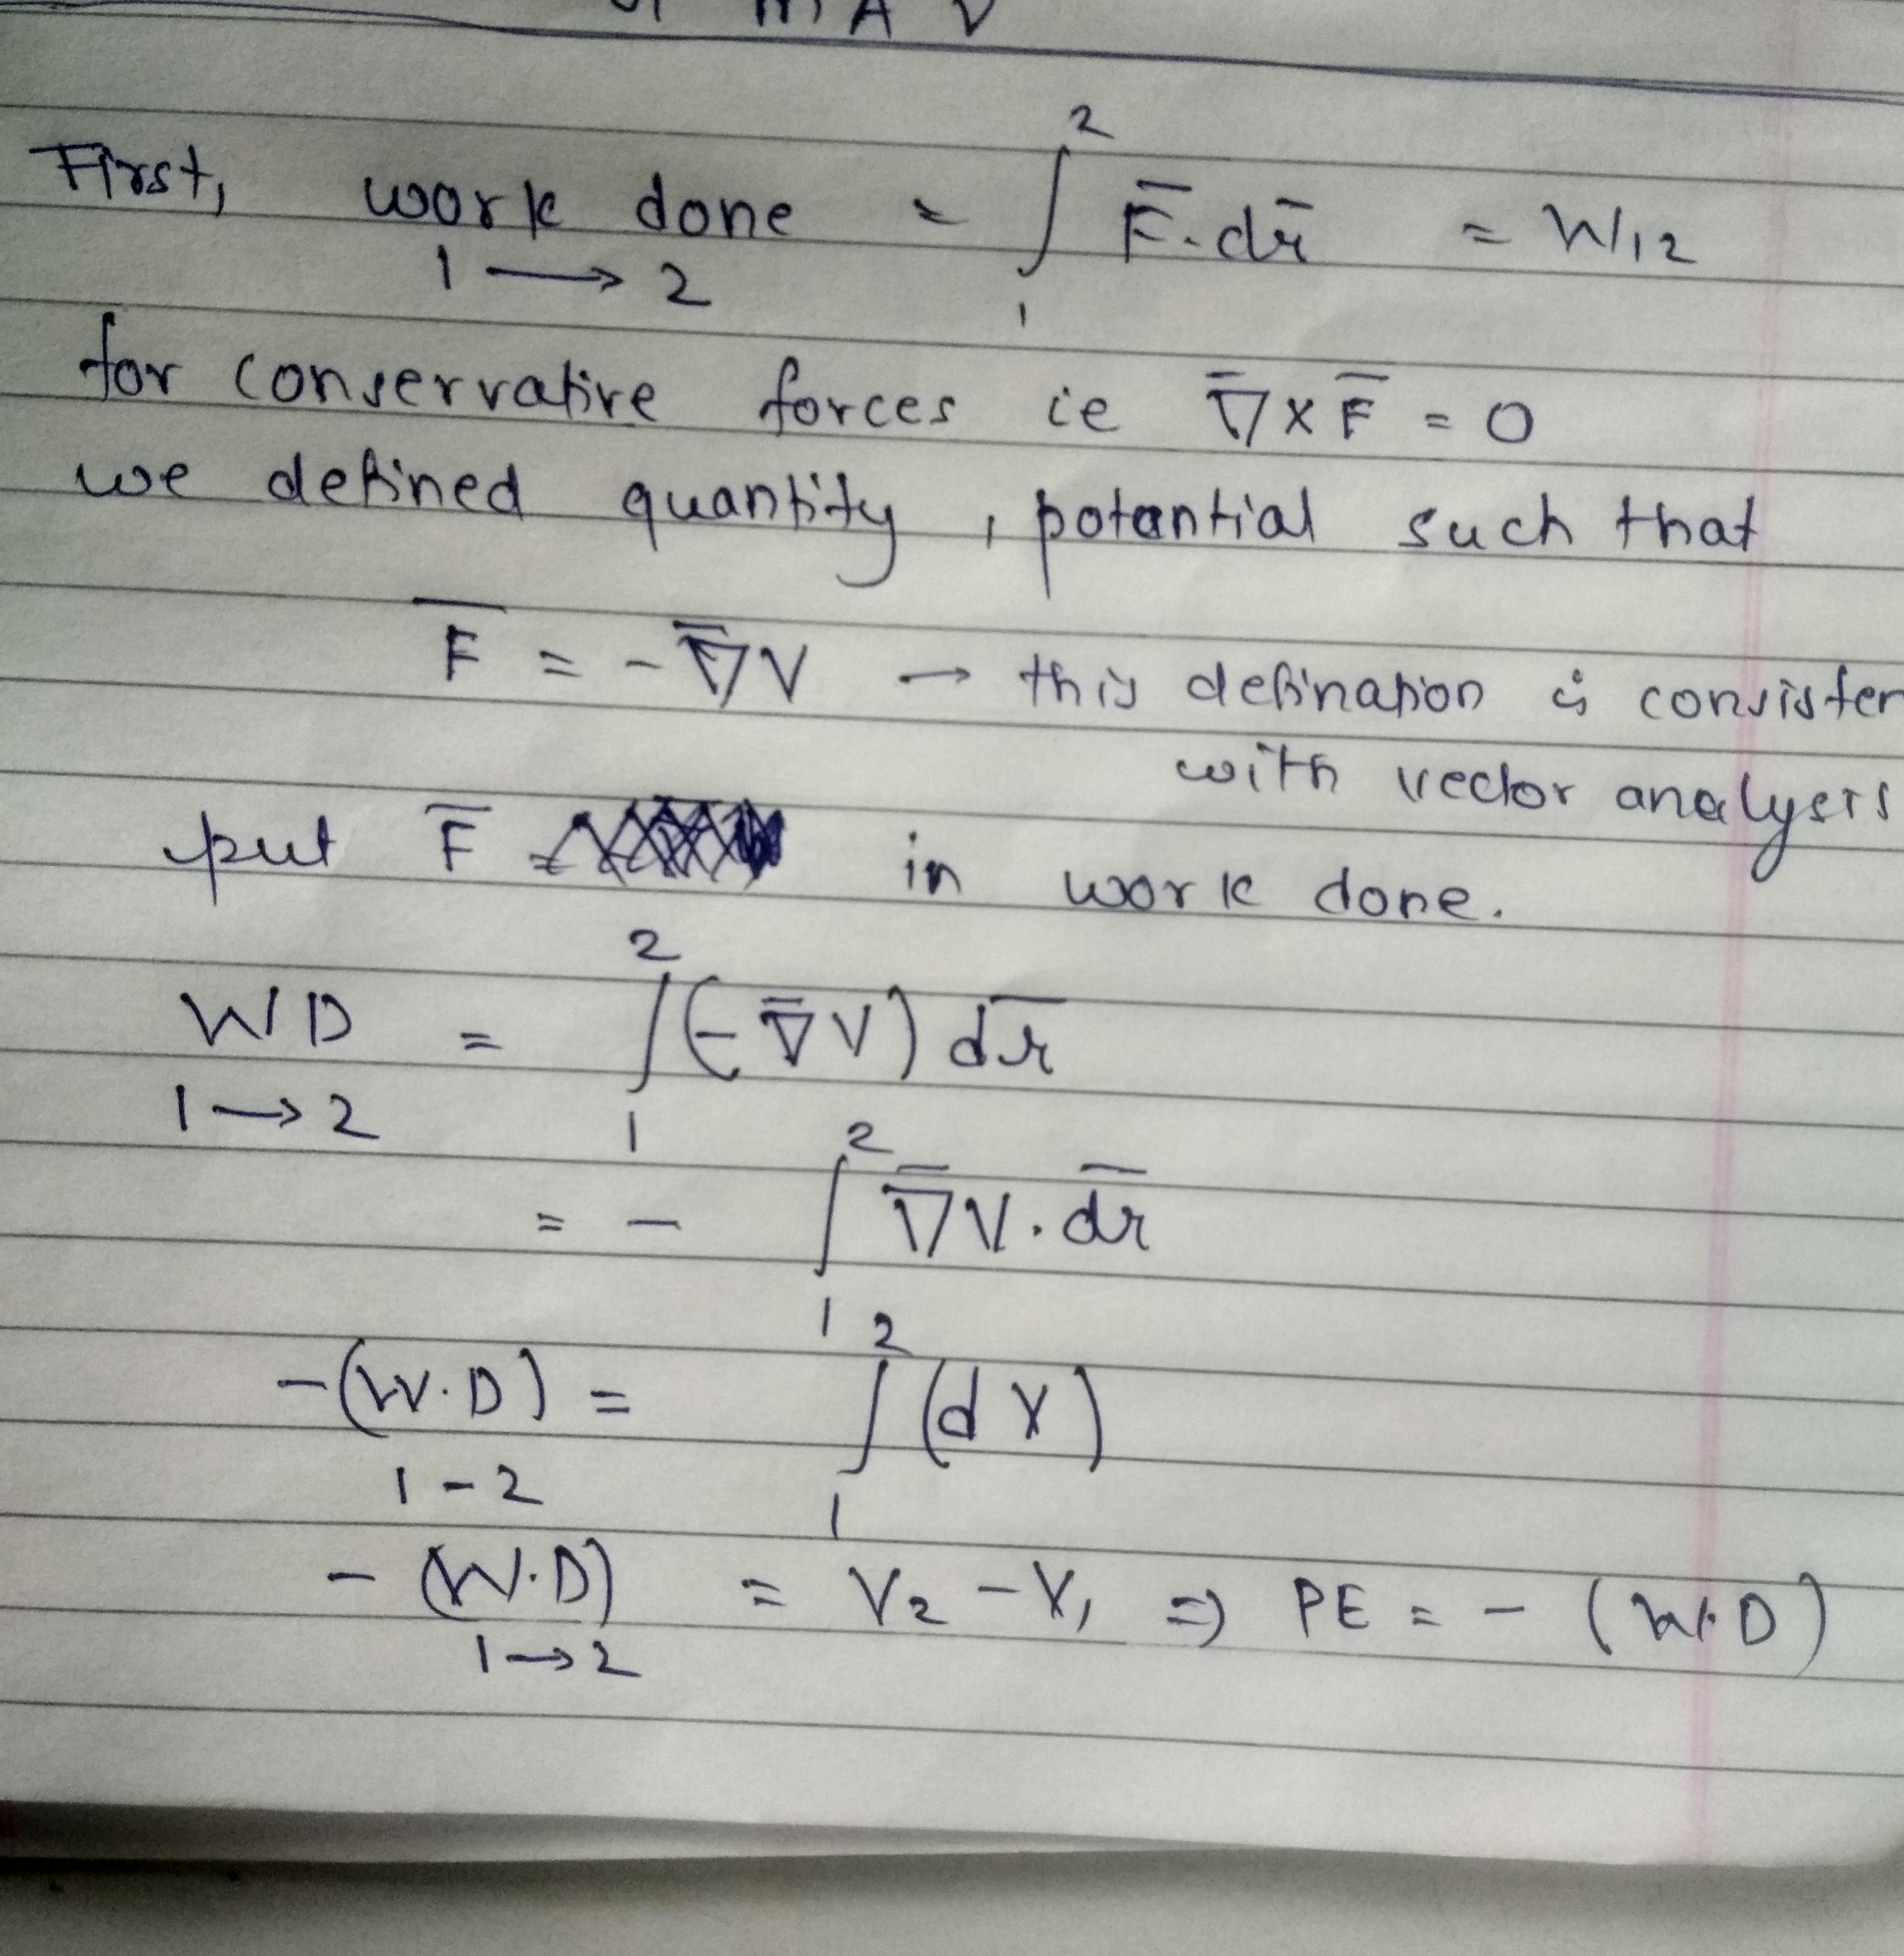 m A V
First, work done = ∫₁² F̄.dr̄ = W₁₂
1 → 2
for conservative forces ie ∇̄ x F̄ = 0
we defined quantity, potential such that
F̄ = - ∇̄V → this defination is consisten
with vector analysis
put F̄ in work done.
WD = ∫₁² (-∇̄V) dr̄
1 → 2
= - ∫₁² ∇̄V . dr̄
-(W.D) = ∫₁² (dV)
1 - 2
- (W.D) = V₂ - V₁ ⇒ PE = - (W.D)
1 → 2